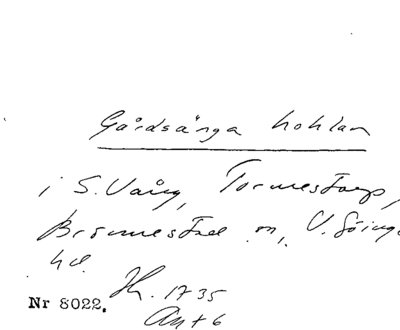 Gårdsänga kohlan
i S. Vång, Tormestorp,
Brönnestad m, V. Göinge
hd.
Nr 8022. H. 1735
Ant 6